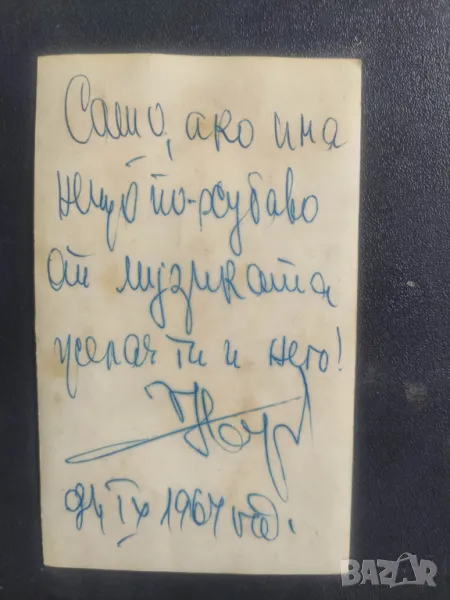 Само, ако има
нещо по-хубаво
от музиката
желая ти и него!
IX 1967 год.
BAZAR